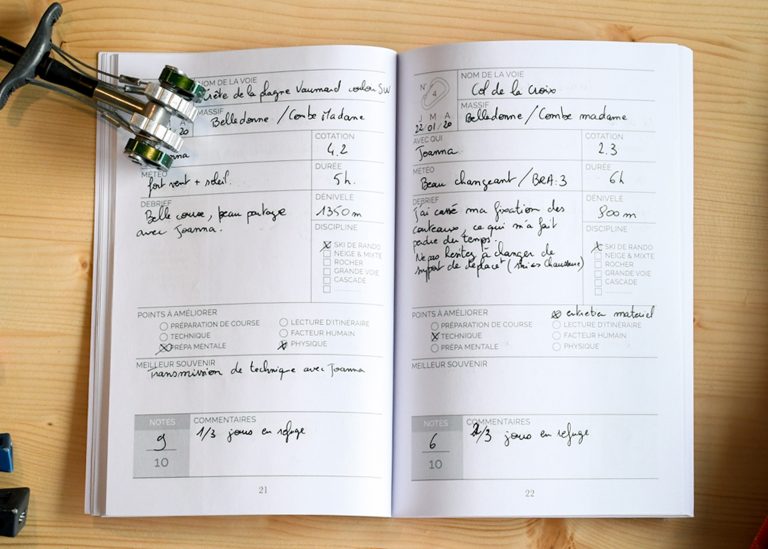 NOM DE LA VOIE
Crête de la plagne Vaumard couloir SW
MASSIF
Belledonne / Combe Madame
20
anna
COTATION
4.2
MÉTÉO
fort vent + soleil.
DURÉE
5h.
DEBRIEF
Belle course, beau partage
avec Joanna.
DÉNIVELÉ
1350 m
DISCIPLINE
SKI DE RANDO
NEIGE & MIXTE
ROCHER
GRANDE VOIE
CASCADE
POINTS À AMÉLIORER
PRÉPARATION DE COURSE
TECHNIQUE
PRÉPA MENTALE
LECTURE D'ITINÉRAIRE
FACTEUR HUMAIN
PHYSIQUE
MEILLEUR SOUVENIR
Transmission de technique avec Joanna
NOTES
9
10
COMMENTAIRES
1/3 jours en refuge
21
N°
4
NOM DE LA VOIE
Col de la Croix
J M A
22 01 20
MASSIF
Belledonne / Combe madame
AVEC QUI
Joanna.
COTATION
2.3
MÉTÉO
Beau changeant / BRA: 3
DURÉE
6h
DEBRIEF
J'ai cassé ma fixation des
couteaux, ce qui m'a fait
perdre du temps.
Ne pas hésitez à changer de
support de déplacet (skis Chaussures)
DÉNIVELÉ
900 m
DISCIPLINE
SKI DE RANDO
NEIGE & MIXTE
ROCHER
GRANDE VOIE
CASCADE
POINTS À AMÉLIORER
entretien materiel
PRÉPARATION DE COURSE
TECHNIQUE
PRÉPA MENTALE
LECTURE D'ITINÉRAIRE
FACTEUR HUMAIN
PHYSIQUE
MEILLEUR SOUVENIR
NOTES
6
10
COMMENTAIRES
2/3 jours en refuge
22